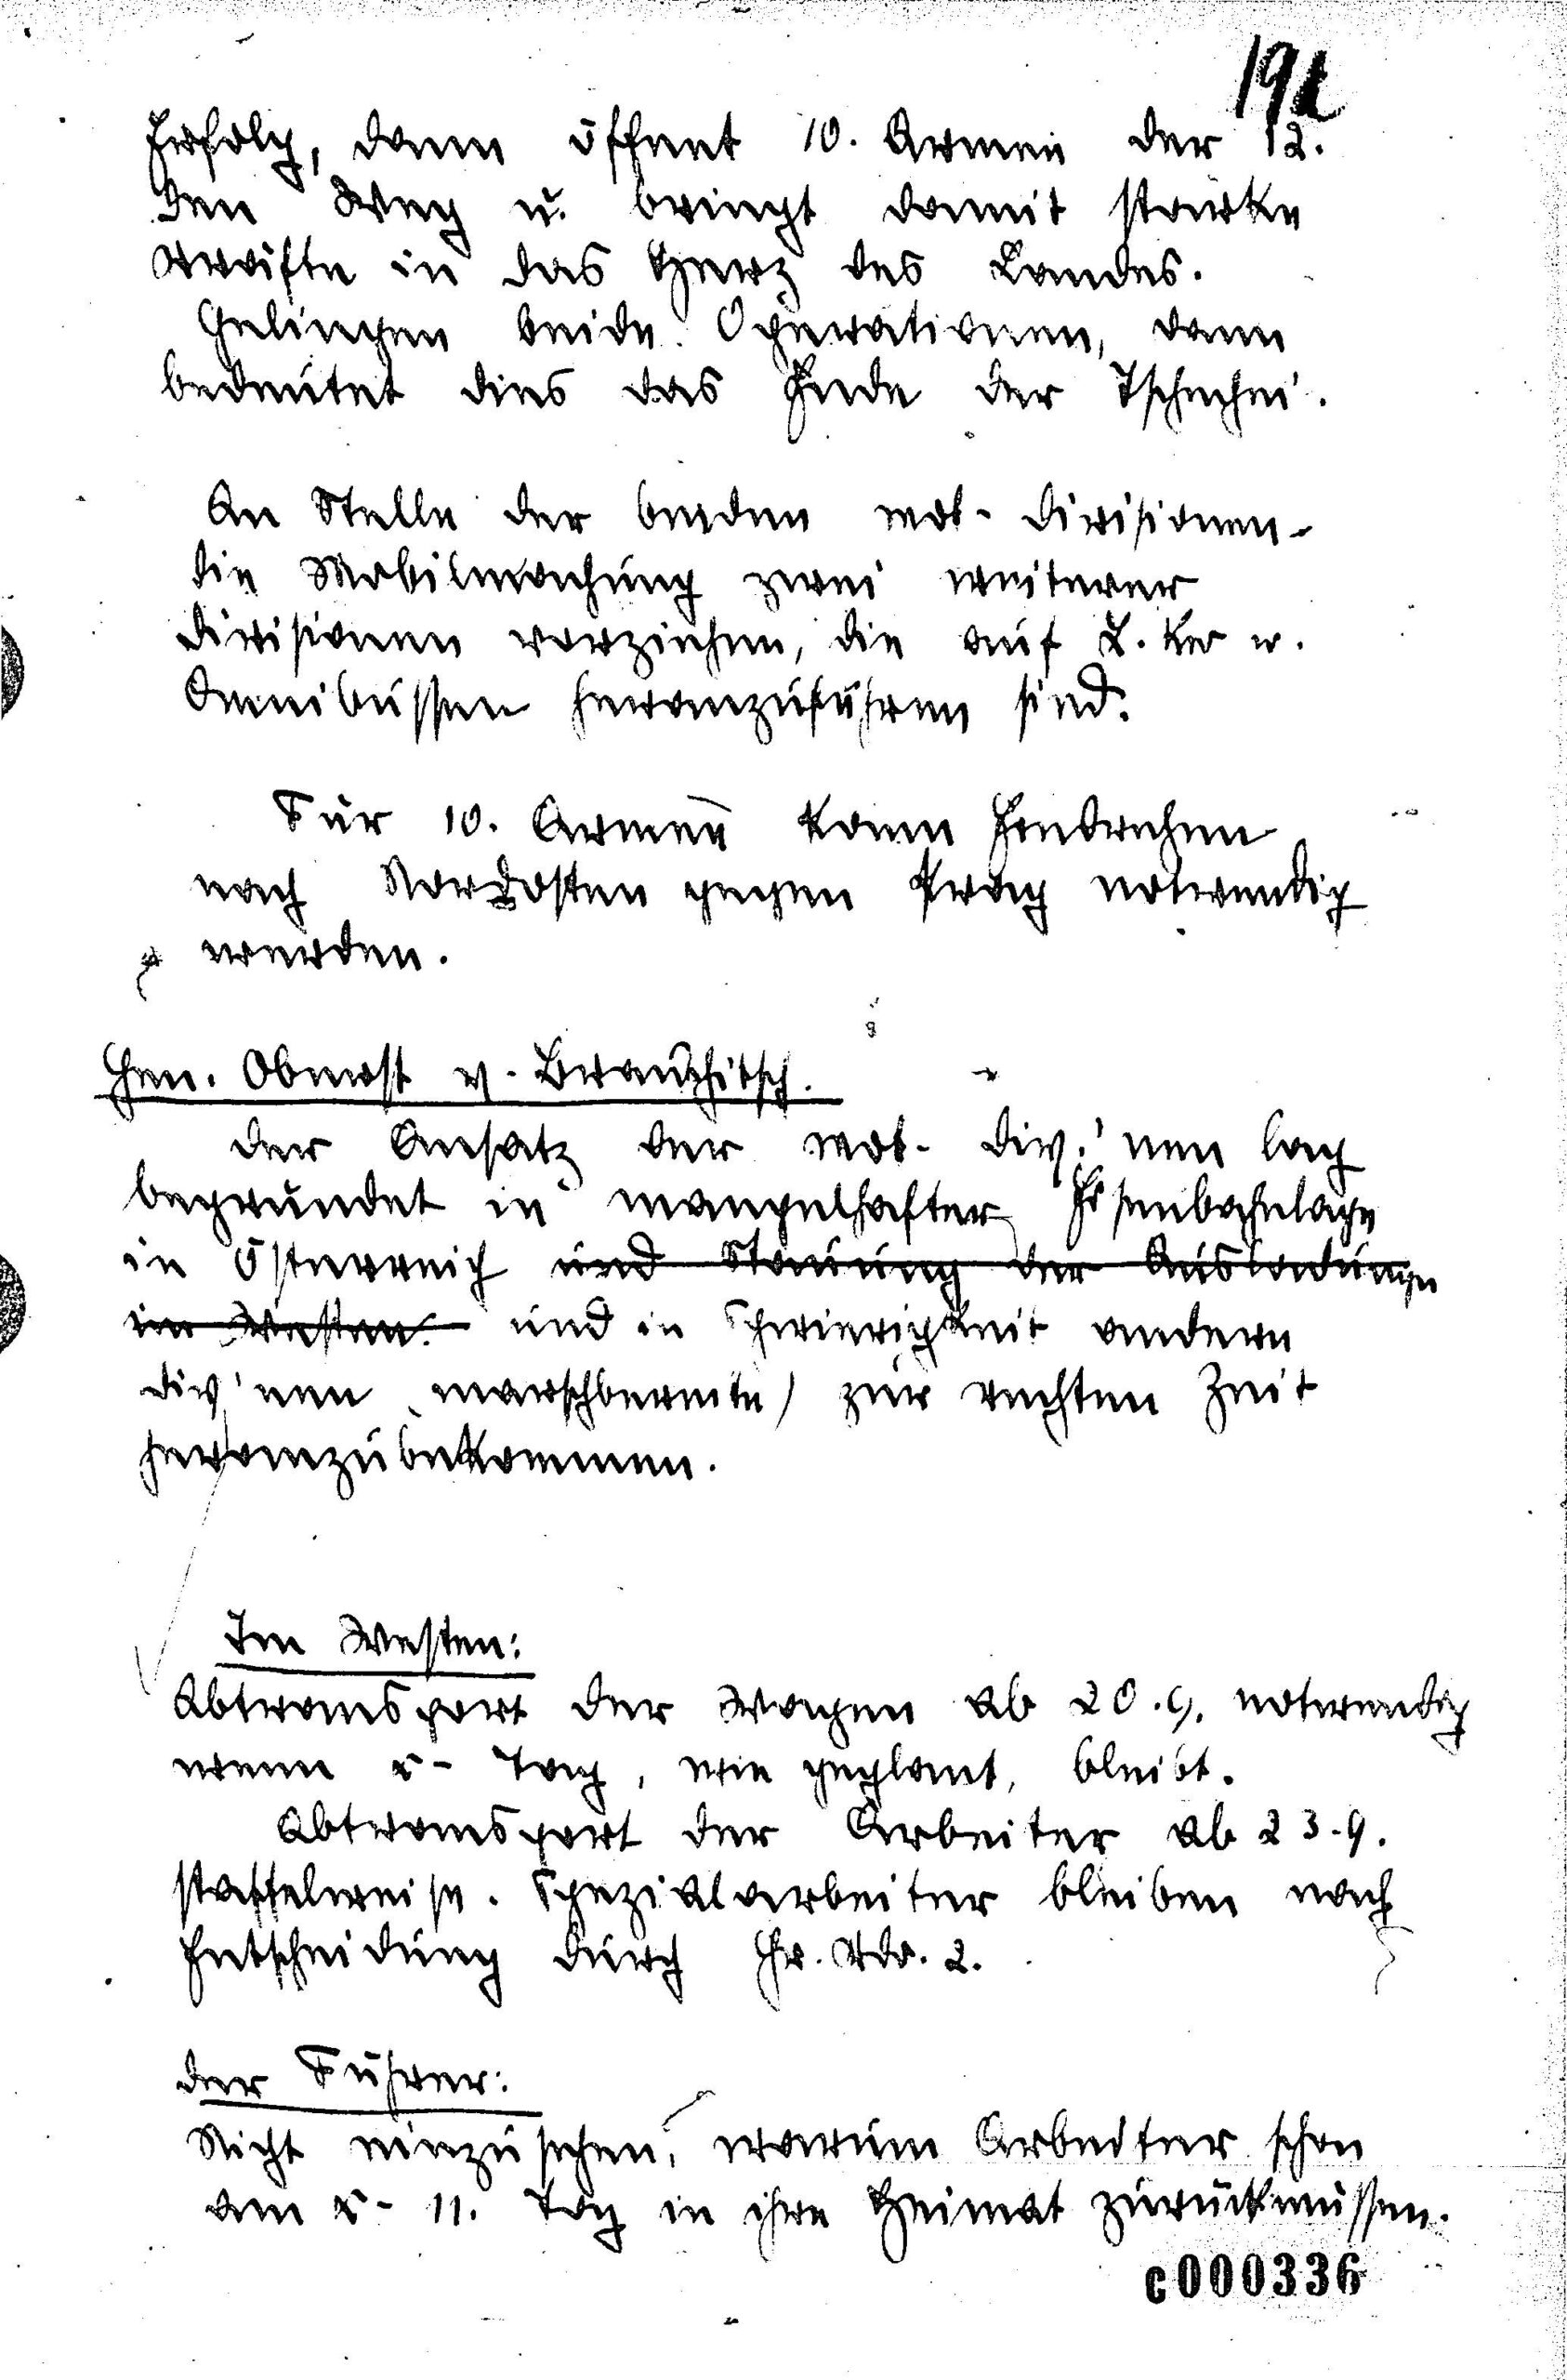 Erfolg, dann öffnet 10. Armee der 12.
den Weg u. bringt damit starke
Kräfte in das Herz des Landes.
Gelingen beide Operationen, dann
bedeutet dies das Ende der Tschechei.
An Stelle der beiden mot. Divisionen
die Mobilmachung zwei weiterer
Divisionen vorziehen, die auf L. Kw u.
Omnibussen heranzuführen sind.
Für 10. Armee kann Eindrehen
nach Nordosten gegen Prag notwendig
werden.
Gen. Oberst v. Brauchitsch.
Der Ansatz der mot. Div.'nen lag
begründet in mangelhafter Eisenbahnlage
in Österreich und Stauung der Ausladungen
im Westen. und in Schwierigkeit andern
Div'nen (marschbereite) zur rechten Zeit
heranzubekommen.
Im Westen:
Abtransport der Wagen ab 20.9. notwendig
wenn x- Tag, wie geplant, bleibt.
Abtransport der Arbeiter ab 23.9.
staffelweise. Spezialarbeiter bleiben nach
Entscheidung durch Gr. Kdo. 2.
Der Führer:
Nicht einzusehen, warum Arbeiter schon
am x- 11. Tag in ihre Heimat zurückmüssen.
c000336